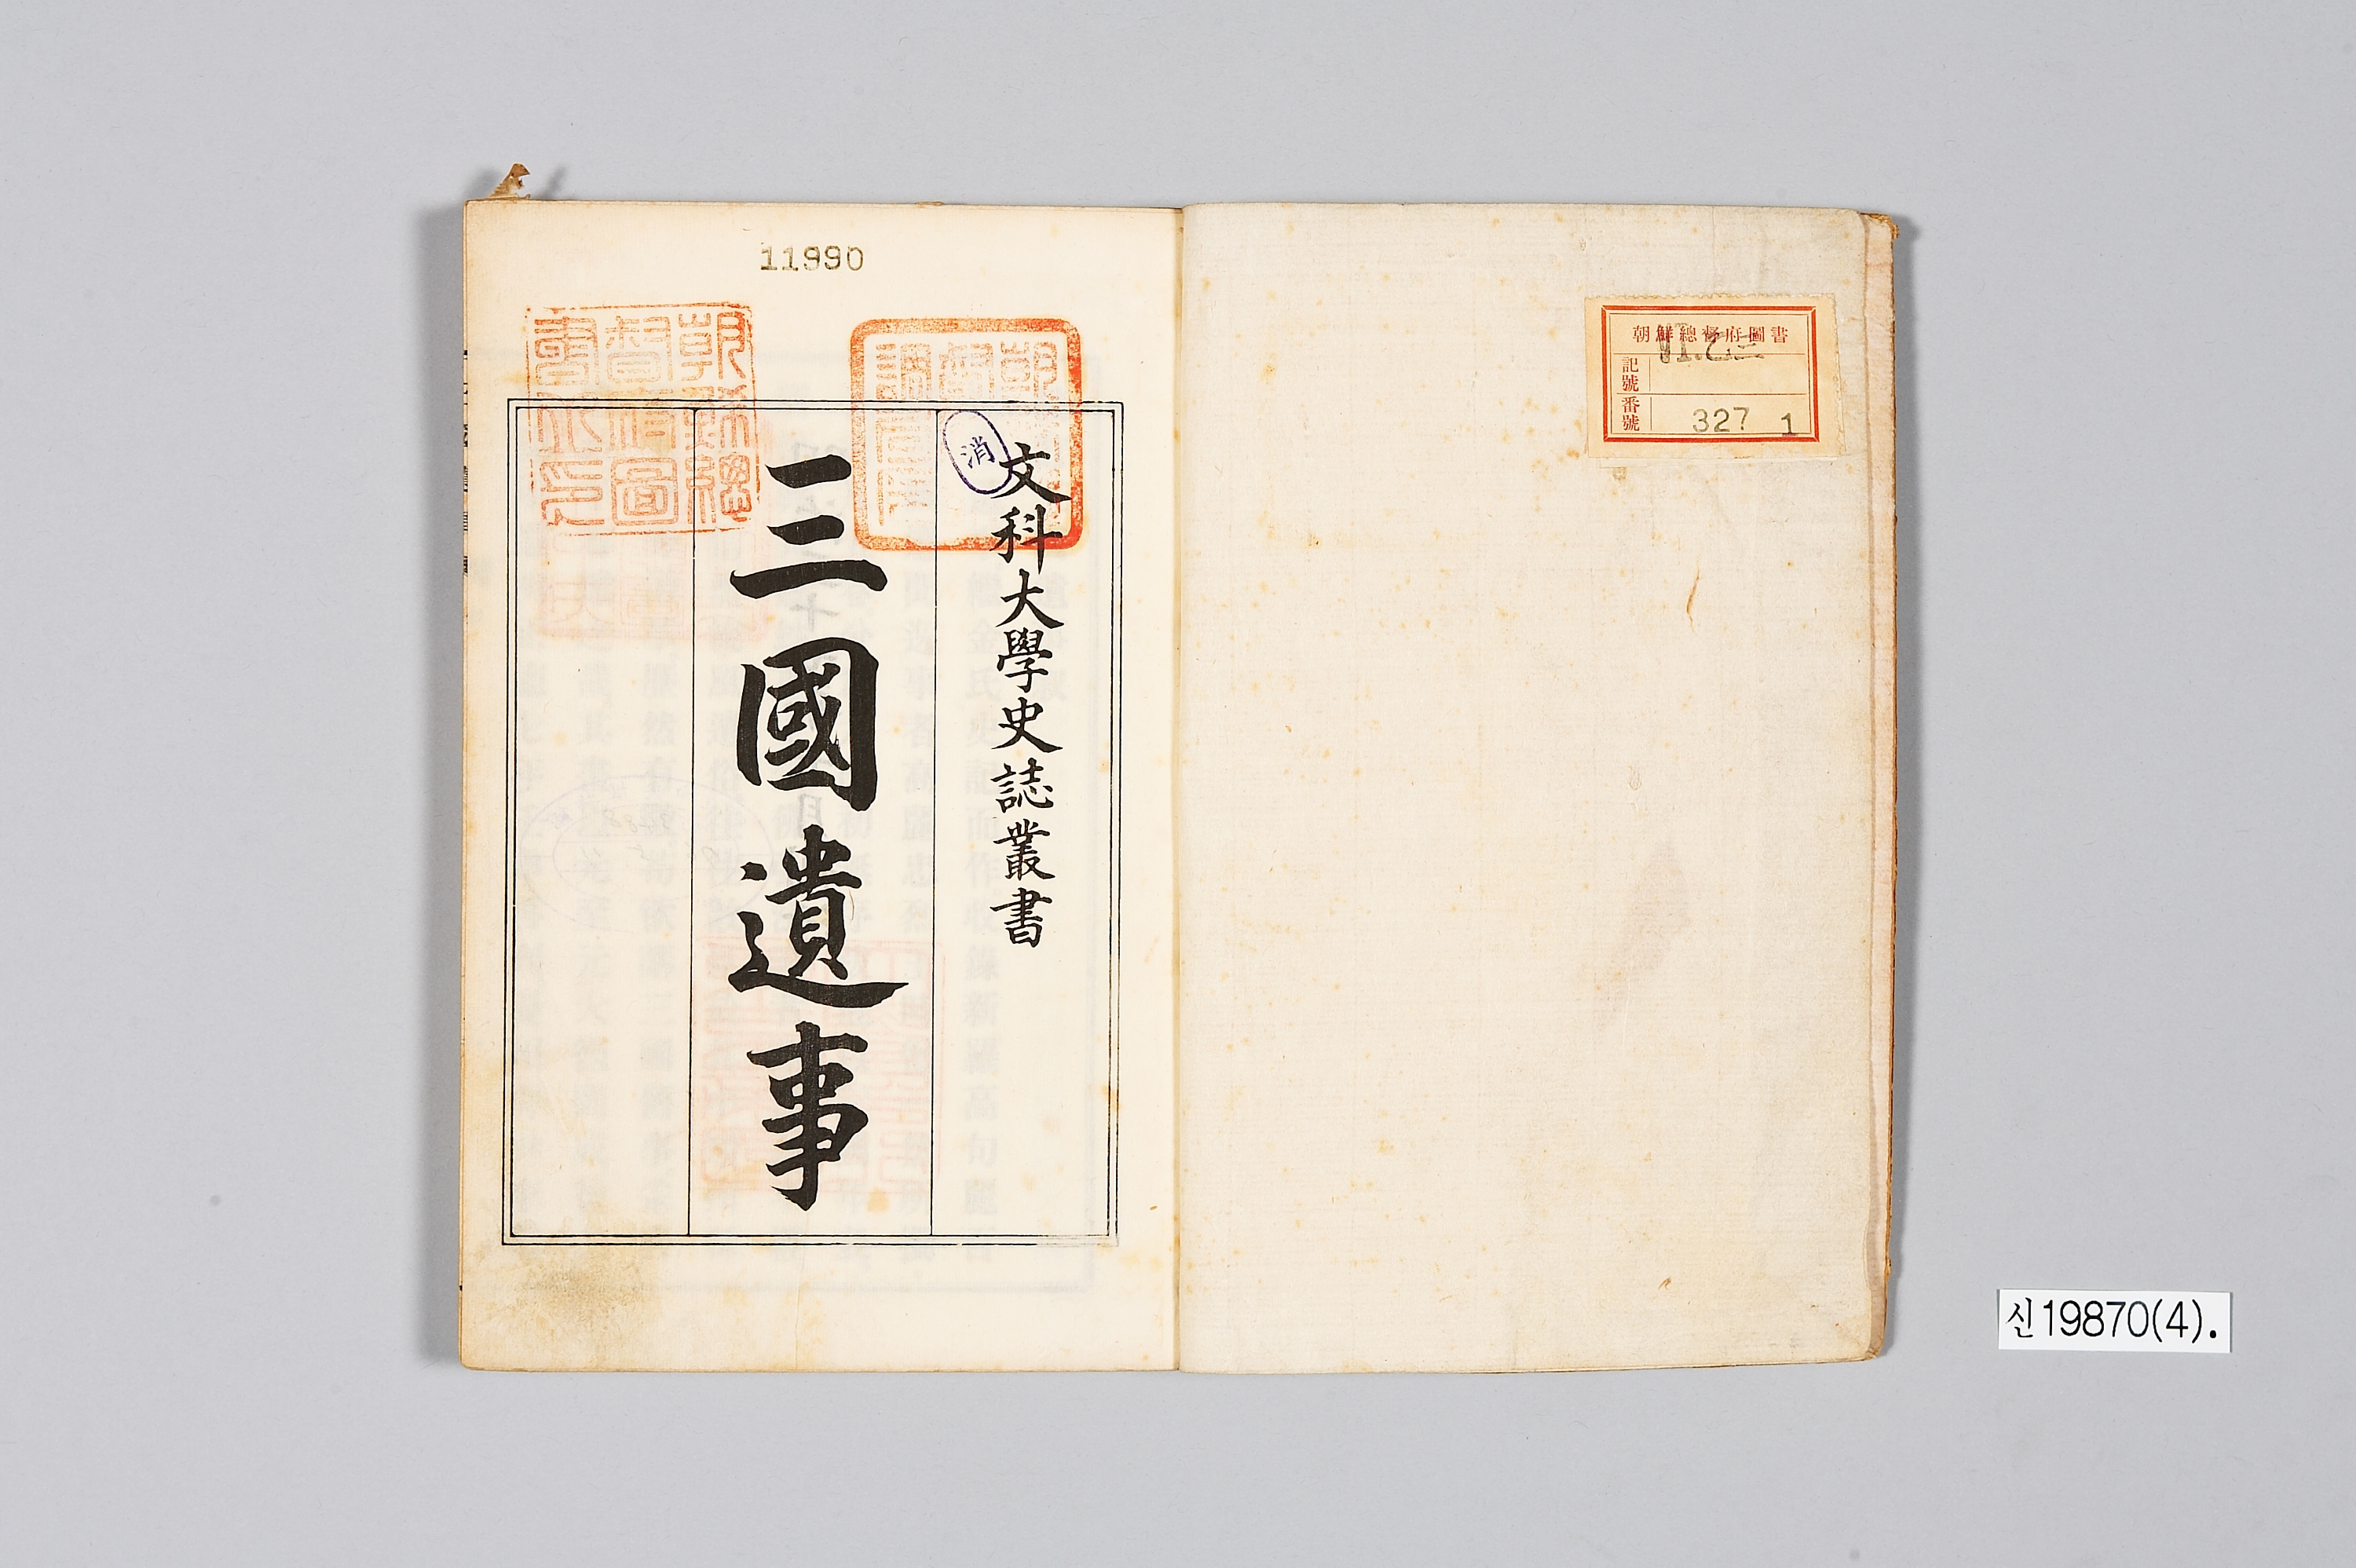 朝鮮總督府圖書
記號
番號
327 1
11990
文科大學史誌叢書
消
三國遺事
朝鮮總督府圖書之印
신19870(4).